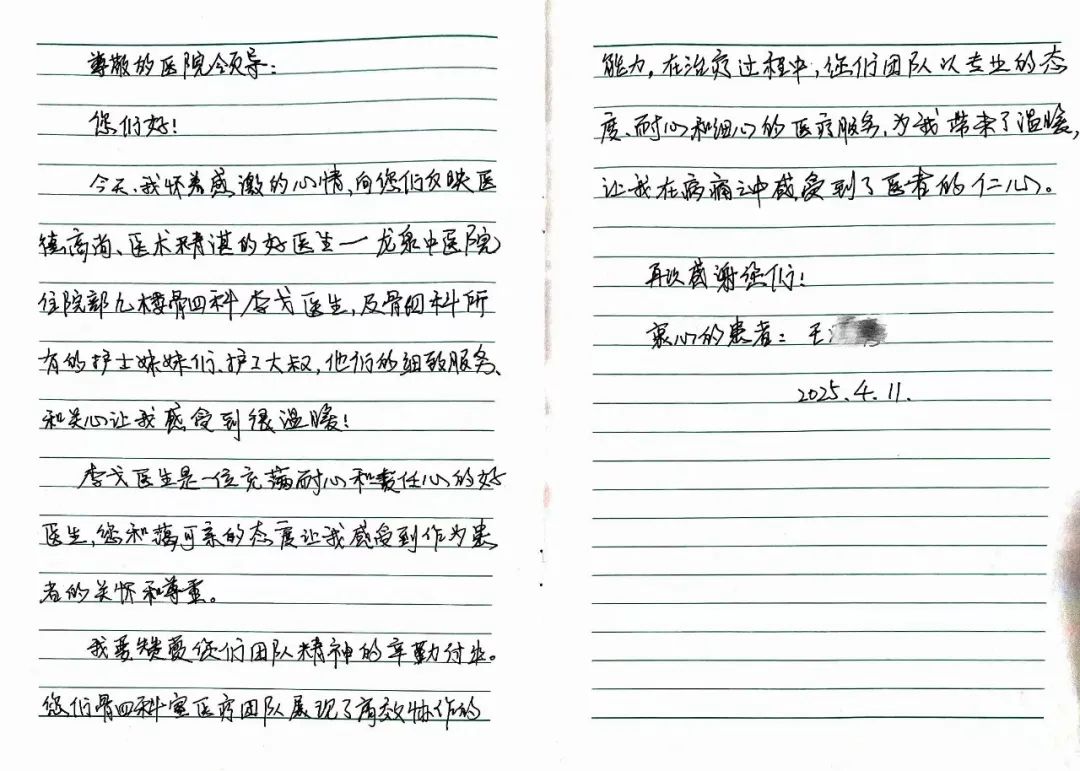 尊敬的医院领导：
您们好！
今天，我怀着感激的心情，向您们反映医
德高尚、医术精湛的好医生一龙泉中医院
住院部九楼骨四科李戈医生，及骨四科所
有的护士妹妹们、护工大叔，他们的细致服务、
和关心让我感受到很温暖！
李戈医生是一位充满耐心和责任心的好
医生，您和蔼可亲的态度让我感受到作为患
者的关怀和尊重。
我要赞美您们团队精神的辛勤付出。
您们骨四科室医疗团队展现了高效协作的
能力，在治疗过程中，您们团队以专业的态
度、耐心和细心的医疗服务，为我带来了温暖，
让我在病痛之中感受到了医者的仁心。
再次感谢您们！
衷心的患者：王
2025.4.11.